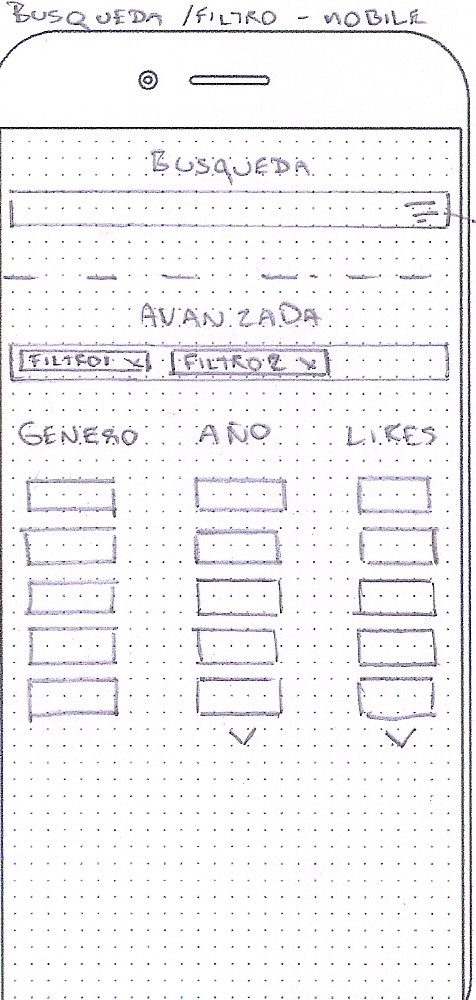 BUSQUEDA / FILTRO - MOBILE
BUSQUEDA
AVANZADA
FILTRO1 FILTRO2
GENERO AÑO LIKES